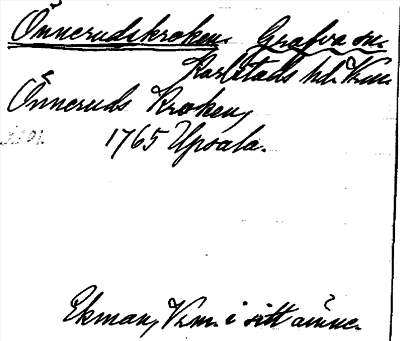 Önnerudskroken. Grafva sn.
Karlstads hd. Vrm.
Önneruds Kroken,
1765 Upsala.
Ekman, Vrm. i sitt ämne.